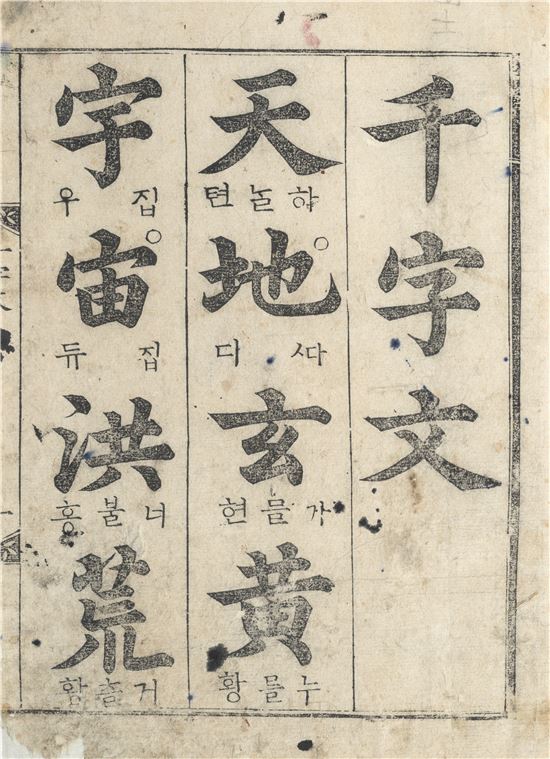 千字文
天
하ᄂᆞᆯ 텬
地
ᄯᅡ 디
玄
가믈 현
黃
누를 황
宇
집 우
宙
집 듀
洪
너불 홍
荒
거츨 황